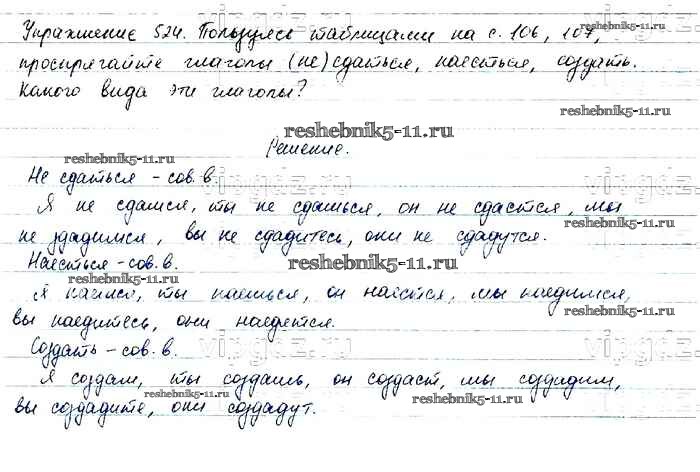 Упражнение 524. Пользуясь таблицами на с. 106, 107,
проспрягайте глаголы (не)сдаться, наесться, создать.
Какого вида эти глаголы?
reshebnik5-11.ru
reshebnik5-11.ru
Решение.
reshebnik5-11.ru
Не сдаться - сов. в.
Я не сдамся, ты не сдашься, он не сдастся, мы
не здадимся, вы не сдадитесь, они не сдадутся.
Наесться - сов. в.
reshebnik5-11.ru
reshebnik5-11.ru
Я наемся, ты наешься, он наестся, мы наедимся,
reshebnik5-11.ru
вы наедитесь, они наедятся.
Создать - сов. в.
Я создам, ты создашь, он создаст, мы создадим,
вы создадите, они создадут.
reshebnik5-11.ru